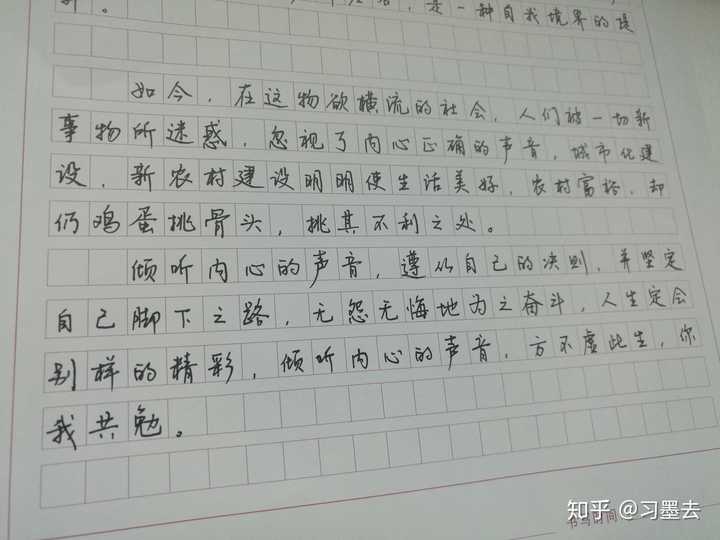 是一种自我境界的提
如今，在这物欲横流的社会，人们被一切新
事物所迷惑，忽视了内心正确的声音，城市化建
设，新农村建设明明使生活美好，农村富裕，却
仍鸡蛋挑骨头，挑其不利之处。
倾听内心的声音，遵从自己的决则，并坚定
自己脚下之路，无怨无悔地为之奋斗，人生定会
别样的精彩，倾听内心的声音，方不虚此生，你
我共勉。
书写时间
知乎 @习墨去